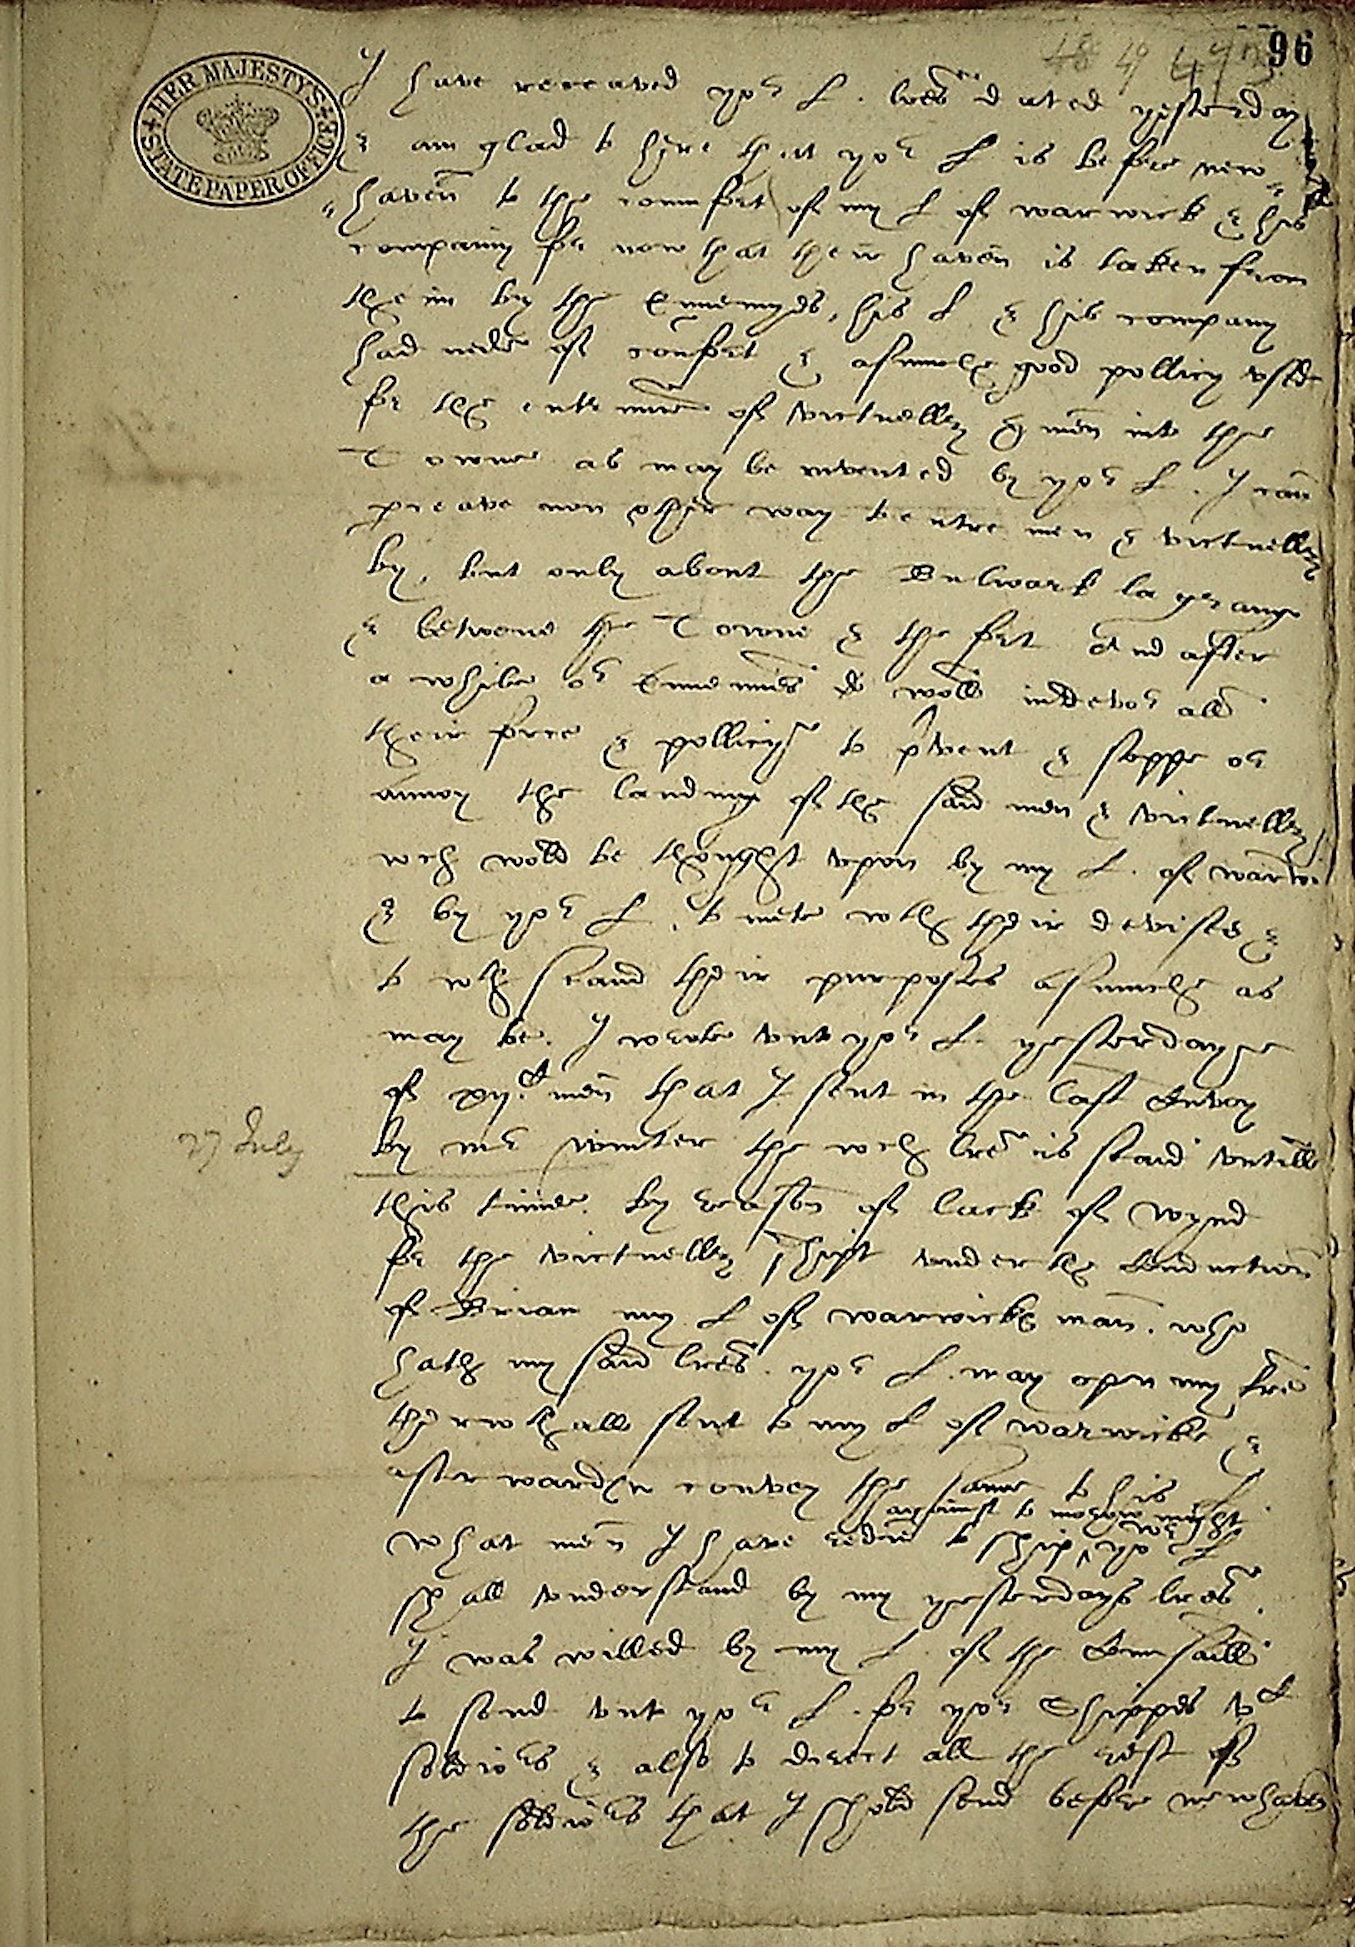 96
HER MAJESTY'S STATE PAPER OFFICE
I have receaved yor L. lres dated yesterday
& am glad to hyre that yor L is before new
haven to the comfort of my L of warwick & his
company for now that their haven is taken from
them by the Ennemyes, his L & his company
had nede of confort & asmuche good pollicy vsed
for the entrance of victuelles & men into the
Towne as may be invented by yor L. I can
preave non other way to entre men & victuelles
by, but only about the Bulwark la grange
& betwene the Towne & the fort And after
a while or Ennemies woll indevor all
their force & pollicy to pvent & stoppe or
annoy the landing of the said men & victuelles
wch wold be thought vpon by my L. of warwi
& by yor L. to mete wth their devises &
to wthstand their purposes asmuche as
may be. I wrote vnto yor L. yesterdaye
of men that I sent in the last Envoy
27 July
by mr winter the wch lre is staid vntill
this time. by reason of lack of wynd
for the victuelles shipt vnder the conduction
of Brian my L of warwicks man. who
hath my said lres. yor L. may open my lre
therwthall sent to my L of warwicke &
afterwardes convey the same to his L
against to morow night
what men I have redie to ship yor L
shall vnderstand by my yesterdays lres.
I was willed by my L. of the Counsaill
to send vnto yor L. for yor Shippes vC
soldiors & also to direct all the rest of
the soldiors that I shold send before newhaven